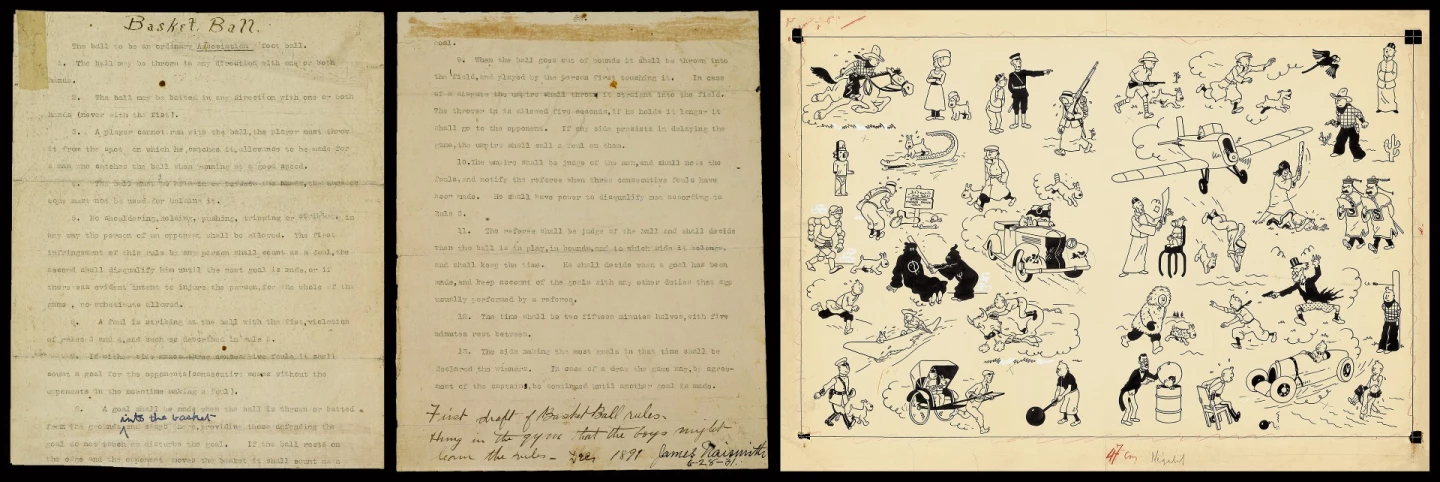 Basket Ball.
The ball to be an ordinary Association foot ball.
1. The ball may be thrown in any direction with one or both
hands.
2. The ball may be batted in any direction with one or both
hands (never with the fist).
3. A player cannot run with the ball, the player must throw
it from the spot on which he catches it, allowance to be made for
a man who catches the ball when running at a good speed.
4. The ball must be held in or between the hands, the arms or
body must not be used for holding it.
5. No shouldering, holding, pushing, tripping or striking in
any way the person of an opponent shall be allowed. The first
infringement of this rule by any person shall count as a foul, the
second shall disqualify him until the next goal is made, or if
there was evident intent to injure the person, for the whole of the
game, no substitute allowed.
6. A foul is striking at the ball with the fist, violation
of rules 3 and 4, and such as described in rule 5.
7. If either side makes three consecutive fouls, it shall
count a goal for the opponents (consecutive means without the
opponents in the meantime making a foul).
8. A goal shall be made when the ball is thrown or batted
into the basket
from the grounds and stays there, providing those defending the
goal do not touch or disturb the goal. If the ball rests on
the edge and the opponent moves the basket it shall count as a
goal.
9. When the ball goes out of bounds it shall be thrown into
the field, and played by the person first touching it. In case
of a dispute the umpire shall throw it straight into the field.
The thrower in is allowed five seconds, if he holds it longer it
shall go to the opponent. If any side persists in delaying the
game, the umpire shall call a foul on them.
10. The umpire shall be judge of the men, and shall note the
fouls, and notify the referee when three consecutive fouls have
been made. He shall have power to disqualify men according to
Rule 5.
11. The referee shall be judge of the ball and shall decide
when the ball is in play, in bounds, and to which side it belongs,
and shall keep the time. He shall decide when a goal has been
made, and keep account of the goals with any other duties that are
usually performed by a referee.
12. The time shall be two fifteen minutes halves, with five
minutes rest between.
13. The side making the most goals in that time shall be
declared the winners. In case of a draw the game may, by agree-
ment of the captains, be continued until another goal is made.
First draft of Basket Ball rules.
Hung in the gym that the boys might
learn the rules - Dec. 1891 James Naismith
6-28-31.